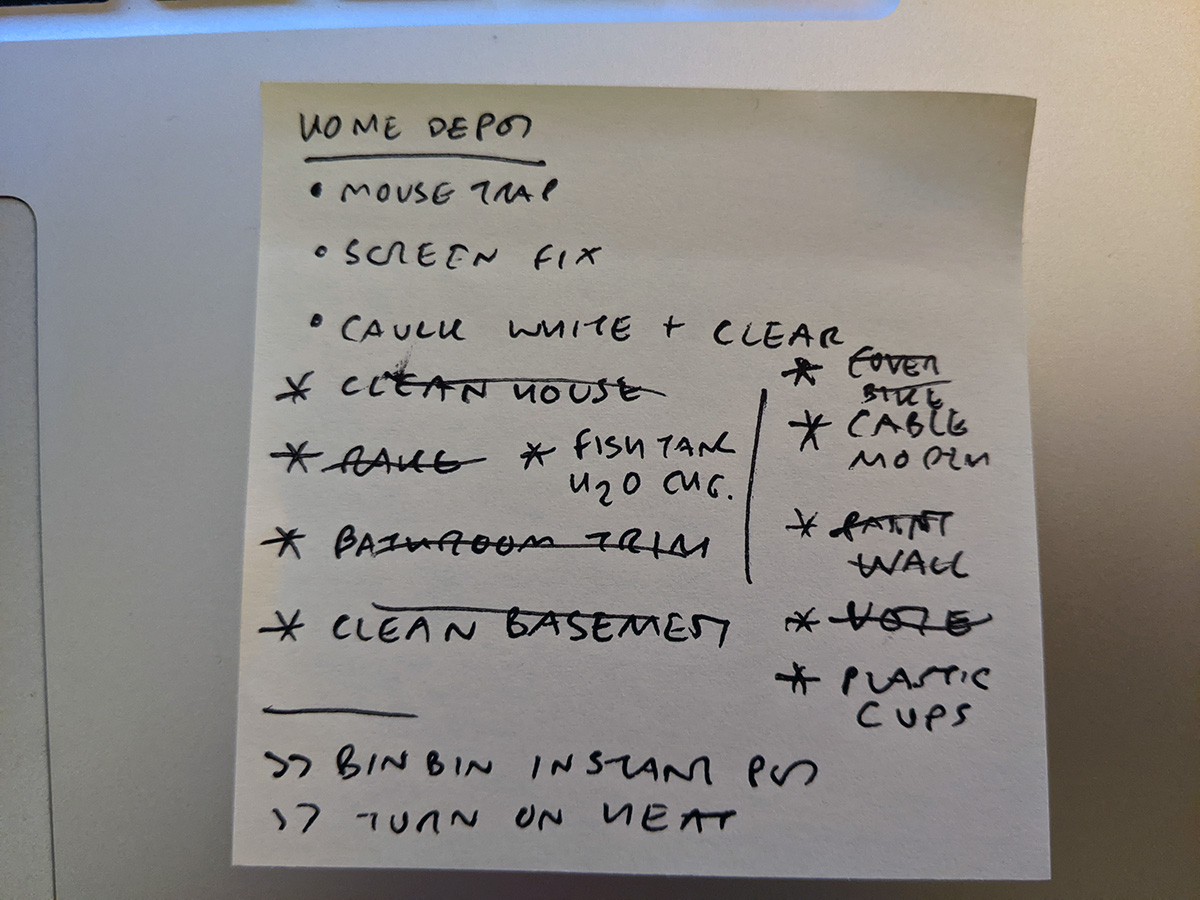 HOME DEPOT
• MOUSE TRAP
• SCREEN FIX
• CAULK WHITE + CLEAR
* CLEAN HOUSE
* RAKE
* FISH TANK
H2O CHG.
* BATHROOM TRIM
* CLEAN BASEMENT
* COVER
BIKE
* CABLE
MODEM
* PAINT
WALL
* VOTE
* PLASTIC
CUPS
>> BINBIN INSTANT POT
>> TURN ON HEAT